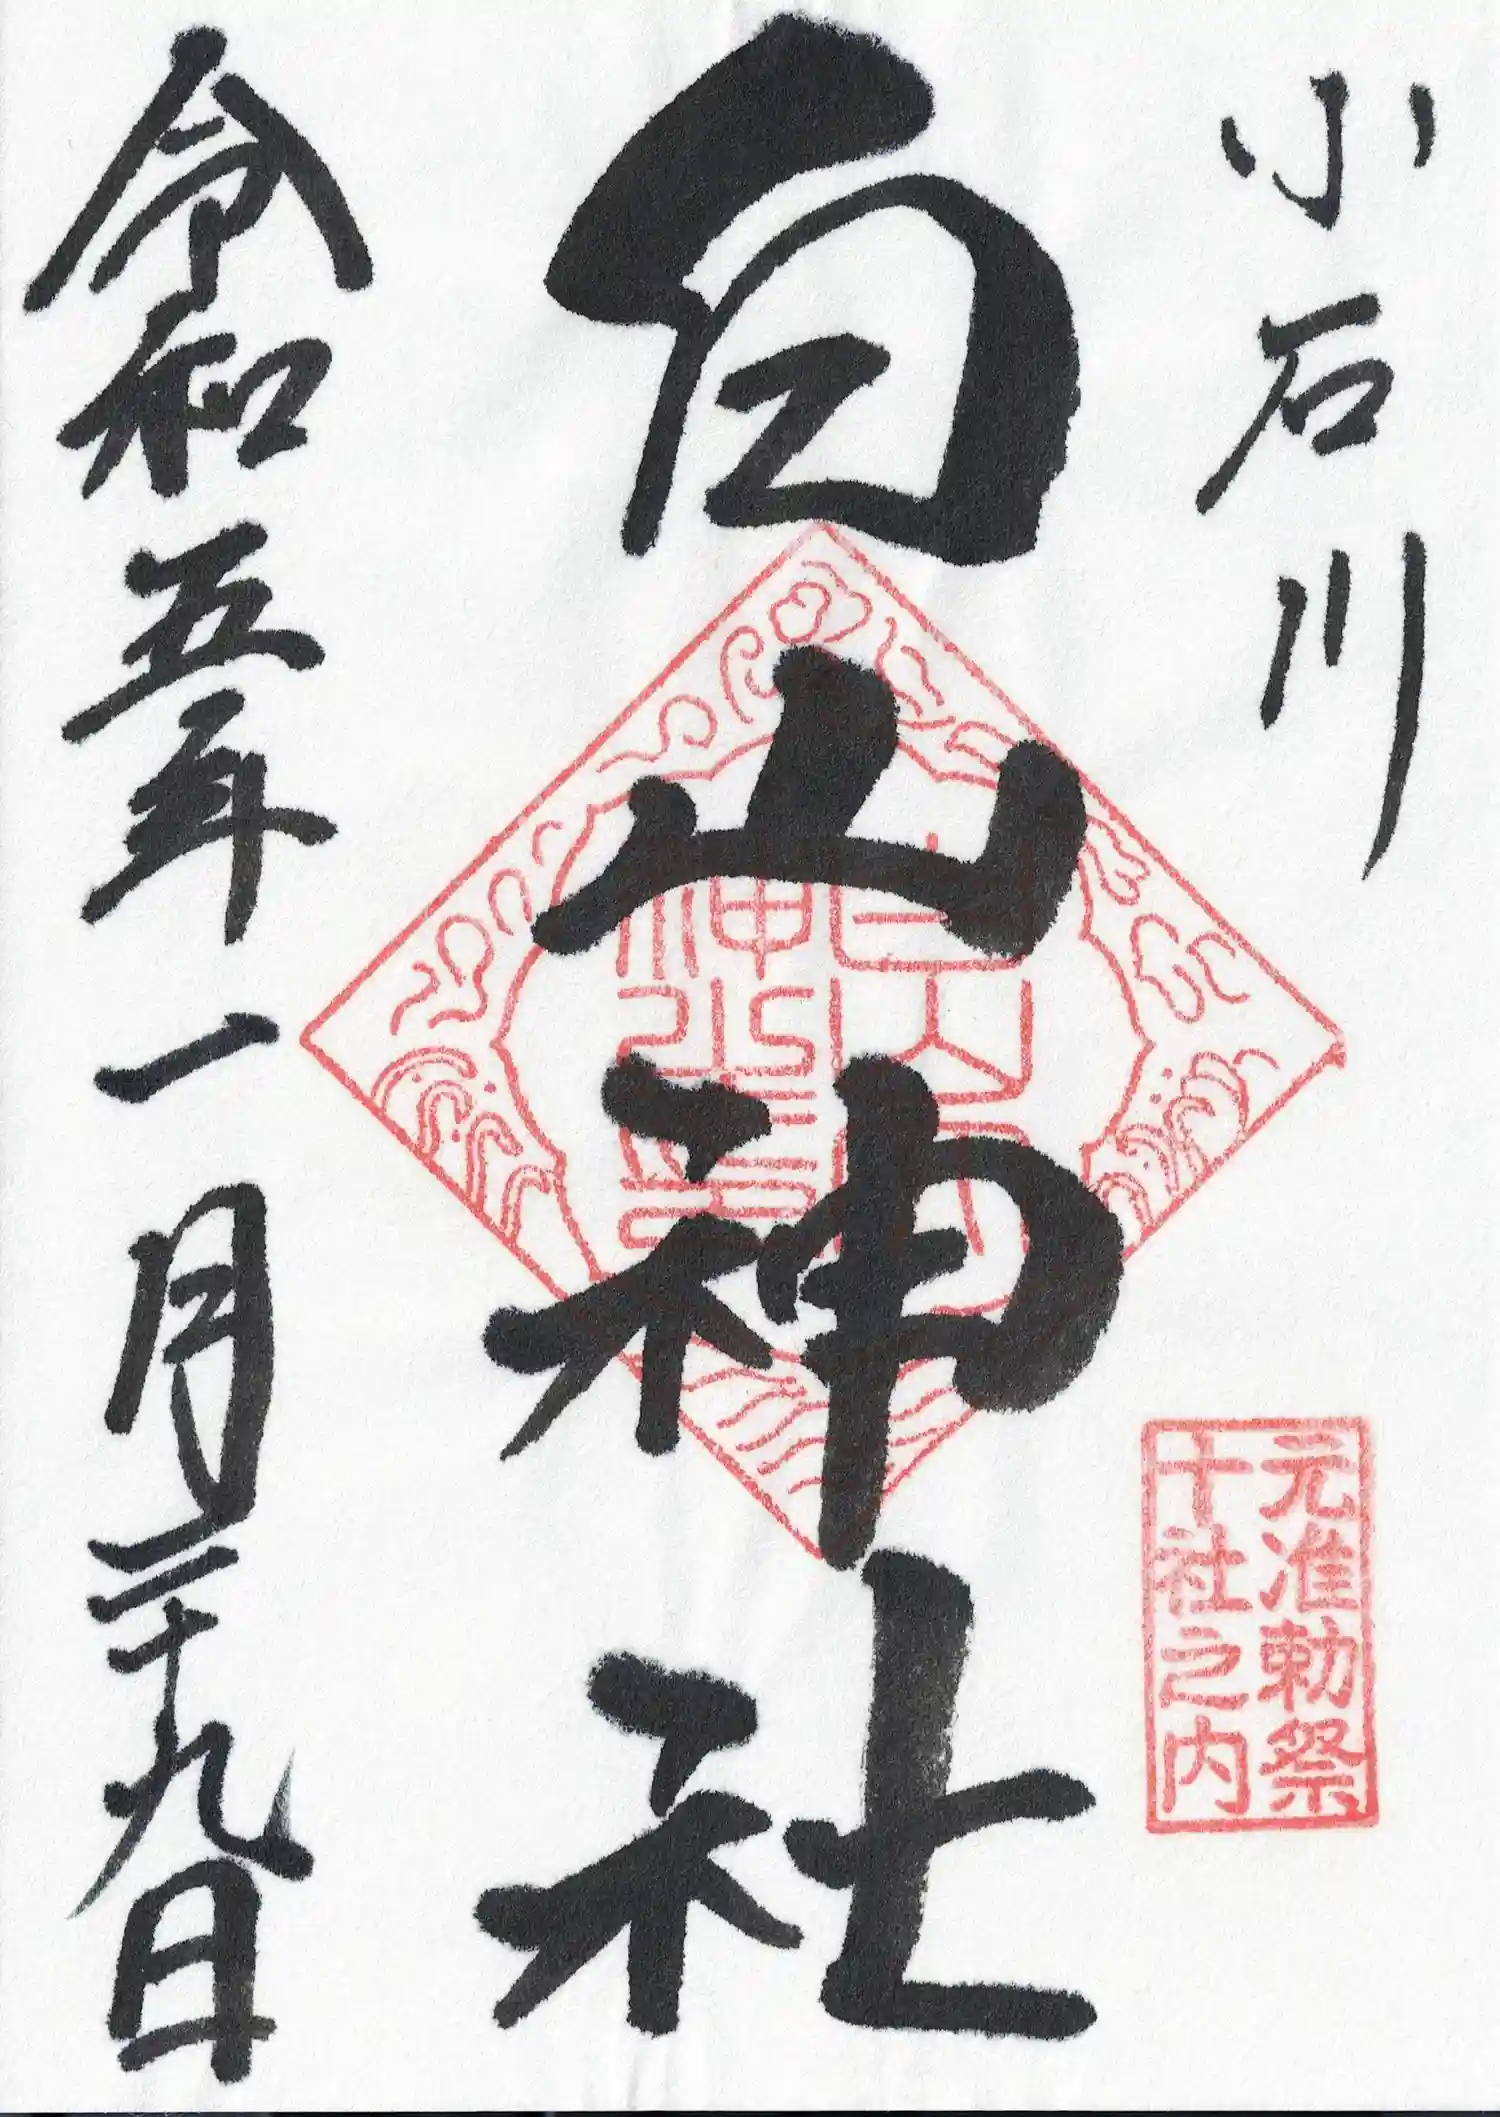 小石川
元准勅祭
十社之内
白山神社
令和五年一月二十九日